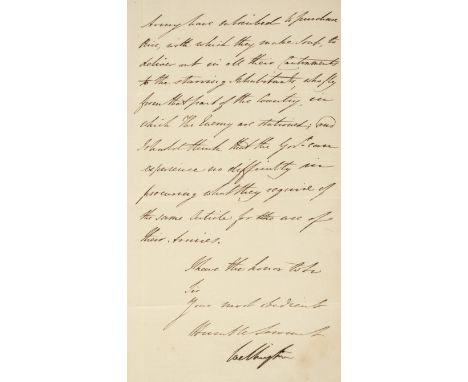 Army have subscribed to purchase
Rice, with which they make Soup, to
deliver out in all their Cantonments
to the starving Inhabitants, who fly
from that part of the Country in
which The Enemy are stationed; and
I should think that the Govt. can
experience no difficulty in
procuring what they require of
the same Article for the use of
their Armies.
I have the honor to be
Sir
Your most obedient
Humble Servant
Wellington